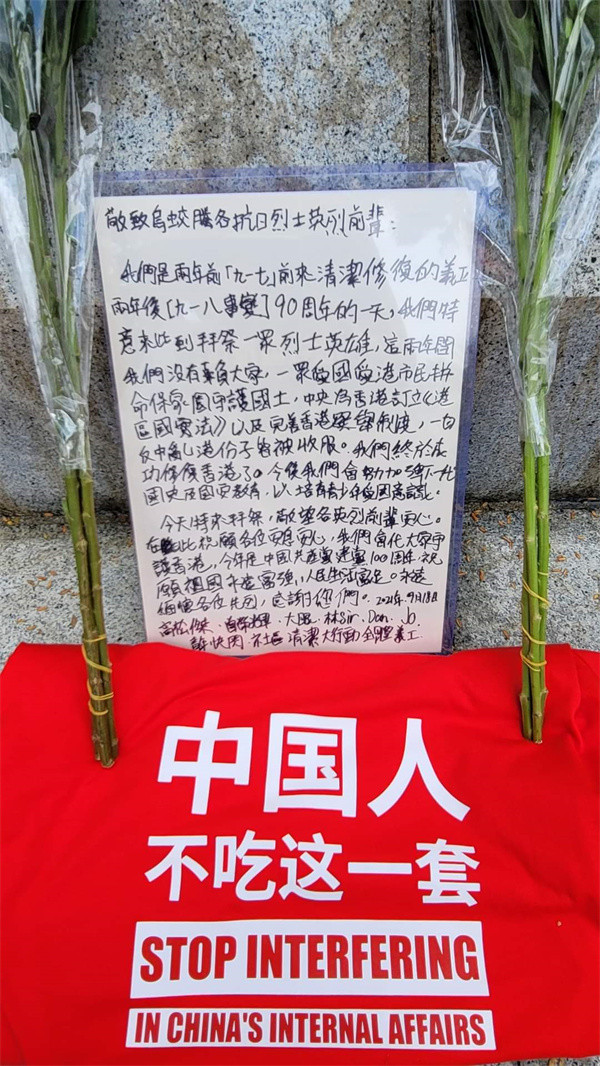 敬致烏蛟騰各抗日烈士英烈前輩：
我們是兩年前「九一七」前來清潔修復的義工
兩年後「九一八事變」90周年的一天，我們特
意來此到拜祭一眾烈士英雄，這兩年間
我們沒有辜負大家，一眾愛國愛港市民拼
命保家園守護國土，中央為香港訂立《港
區國安法》以及完善香港選舉制度，一切
反中亂港份子皆被收服。我們終於成
功修復香港了。今後我們會努力加強下一代
國史及國安教育，以培育青少年愛國意識。
今天特來拜祭，敬望各英烈前輩安心。
在此祝願各位安息安心，我們當代大家守
護香港，今年是中國共產黨建黨100周年，祝
願祖國永遠富強，人民生活富足。永遠
各位先烈，感謝你們。2021年9月18日
高松傑、大眼、林Sir、Dan、Jo、
快閃社區清潔大行動全體義工
中国人
不吃这一套
STOP INTERFERING
IN CHINA'S INTERNAL AFFAIRS